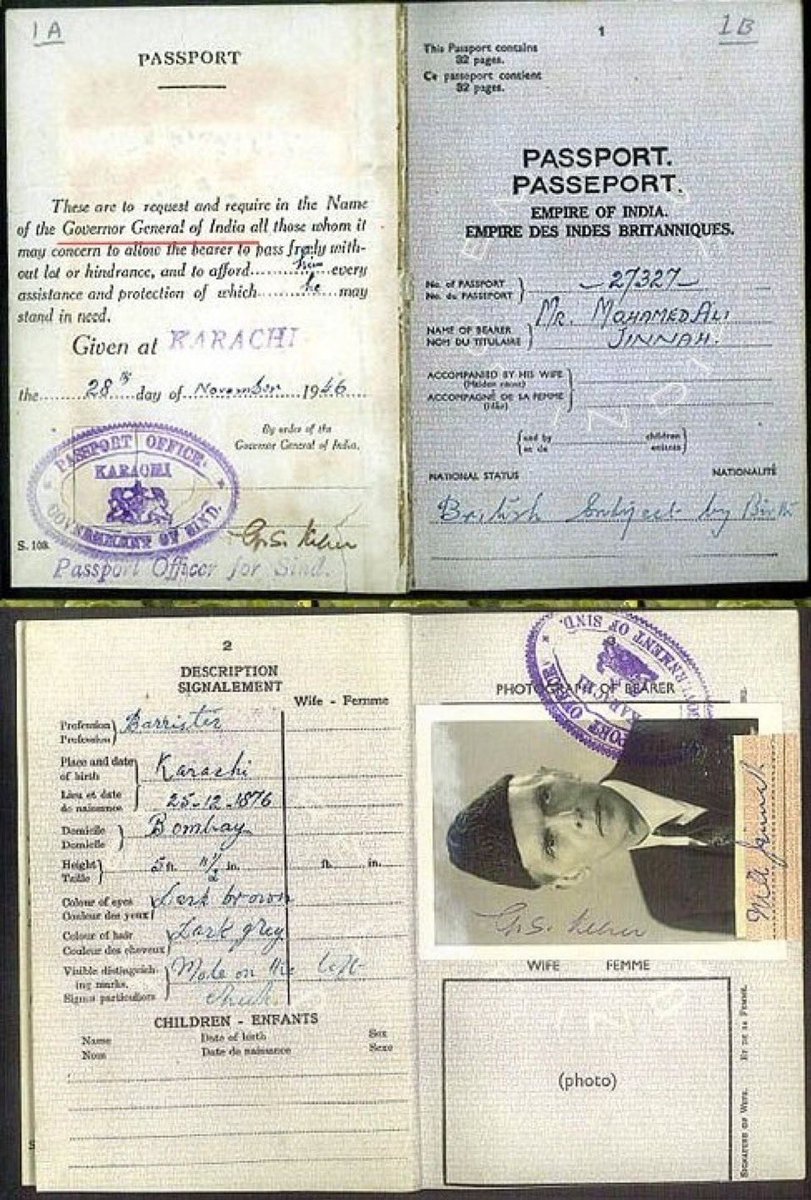 1A
PASSPORT
These are to request and require in the Name
of the Governor General of India all those whom it
may concern to allow the bearer to pass freely with-
out lot or hindrance, and to afford......him......every
assistance and protection of which......he......may
stand in need.
Given at KARACHI
the......28th......day of...November...1946...
By order of the
Governor General of India.
PASSPORT OFFICE
KARACHI
GOVERNMENT OF SIND.
S. 108.
Passport Officer for Sind.
1
1B
This Passport contains
32 pages.
Ce passeport contient
32 pages.
PASSPORT.
PASSEPORT.
EMPIRE OF INDIA.
EMPIRE DES INDES BRITANNIQUES.
No. of PASSPORT
No. du PASSEPORT
27327
NAME OF BEARER
NOM DU TITULAIRE
Mr. MOHAMED ALI
JINNAH.
ACCOMPANIED BY HIS WIFE
(Maiden name)
ACCOMPAGNÉ DE SA FEMME
(Née)
and by children
et de enfants
NATIONAL STATUS NATIONALITÉ
British Subject by Birth
2
DESCRIPTION
SIGNALEMENT
Wife - Femme
Profession
Profession
Barrister
Place and date
of birth
Karachi
Lieu et date
de naissance
25-12-1876
Domicile
Domicile
Bombay
Height
Taille
5 ft. 11½ in. ft. in.
Colour of eyes
Couleur des yeux
Dark brown
Colour of hair
Couleur des cheveux
Dark grey
Visible distinguish-
ing marks.
Signes particuliers
Mole on the left
Cheek.
CHILDREN - ENFANTS
Name Date of birth Sex
Nom Date de naissance Sexe
PHOTOGRAPH OF BEARER
PASSPORT OFFICE
KARACHI
GOVERNMENT OF SIND.
M A Jinnah
WIFE FEMME
(photo)
SIGNATURE OF WIFE. ET DE SA FEMME.